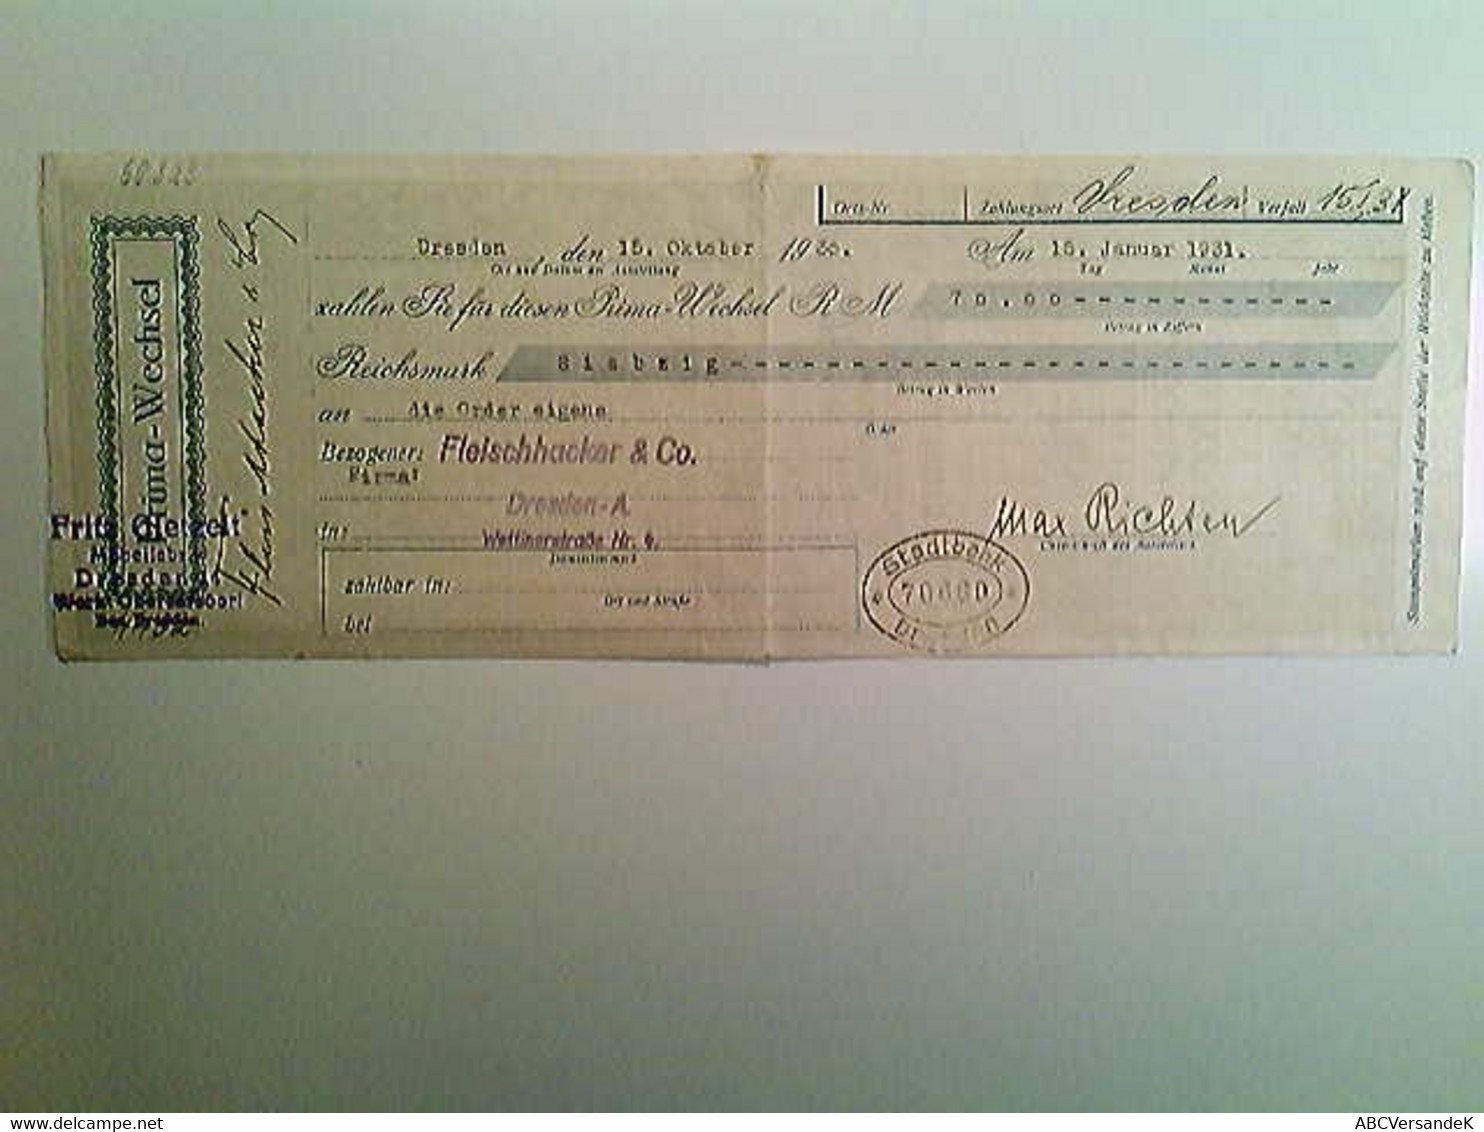 60823
Orts-Nr. Zahlungsort Dresden Verfall 15/I.31
Dresden, den 15. Oktober 1930. Am 15. Januar 1931.
Ort und Datum der Ausstellung Tag Monat Jahr
zahlen Sie für diesen Prima-Wechsel RM 70.00
Betrag in Ziffern
Reichsmark Siebzig
Betrag in Worten
an die Order eigene
Order
Bezogener: Fleischhacker & Co.
Firma:
Dresden-A.
in: Wettinerstraße Nr. 4.
zahlbar in:
Ort und Straße
bei
Max Richter
Unterschrift des Ausstellers
Stadtbank
70600
Dresden
Prima-Wechsel
Fleischhacker & Co
Fritz
Dresden
Stempelmarken sind auf dieser Stelle der Rückseite zu kleben.
ABCVersandeK
delcampe.net